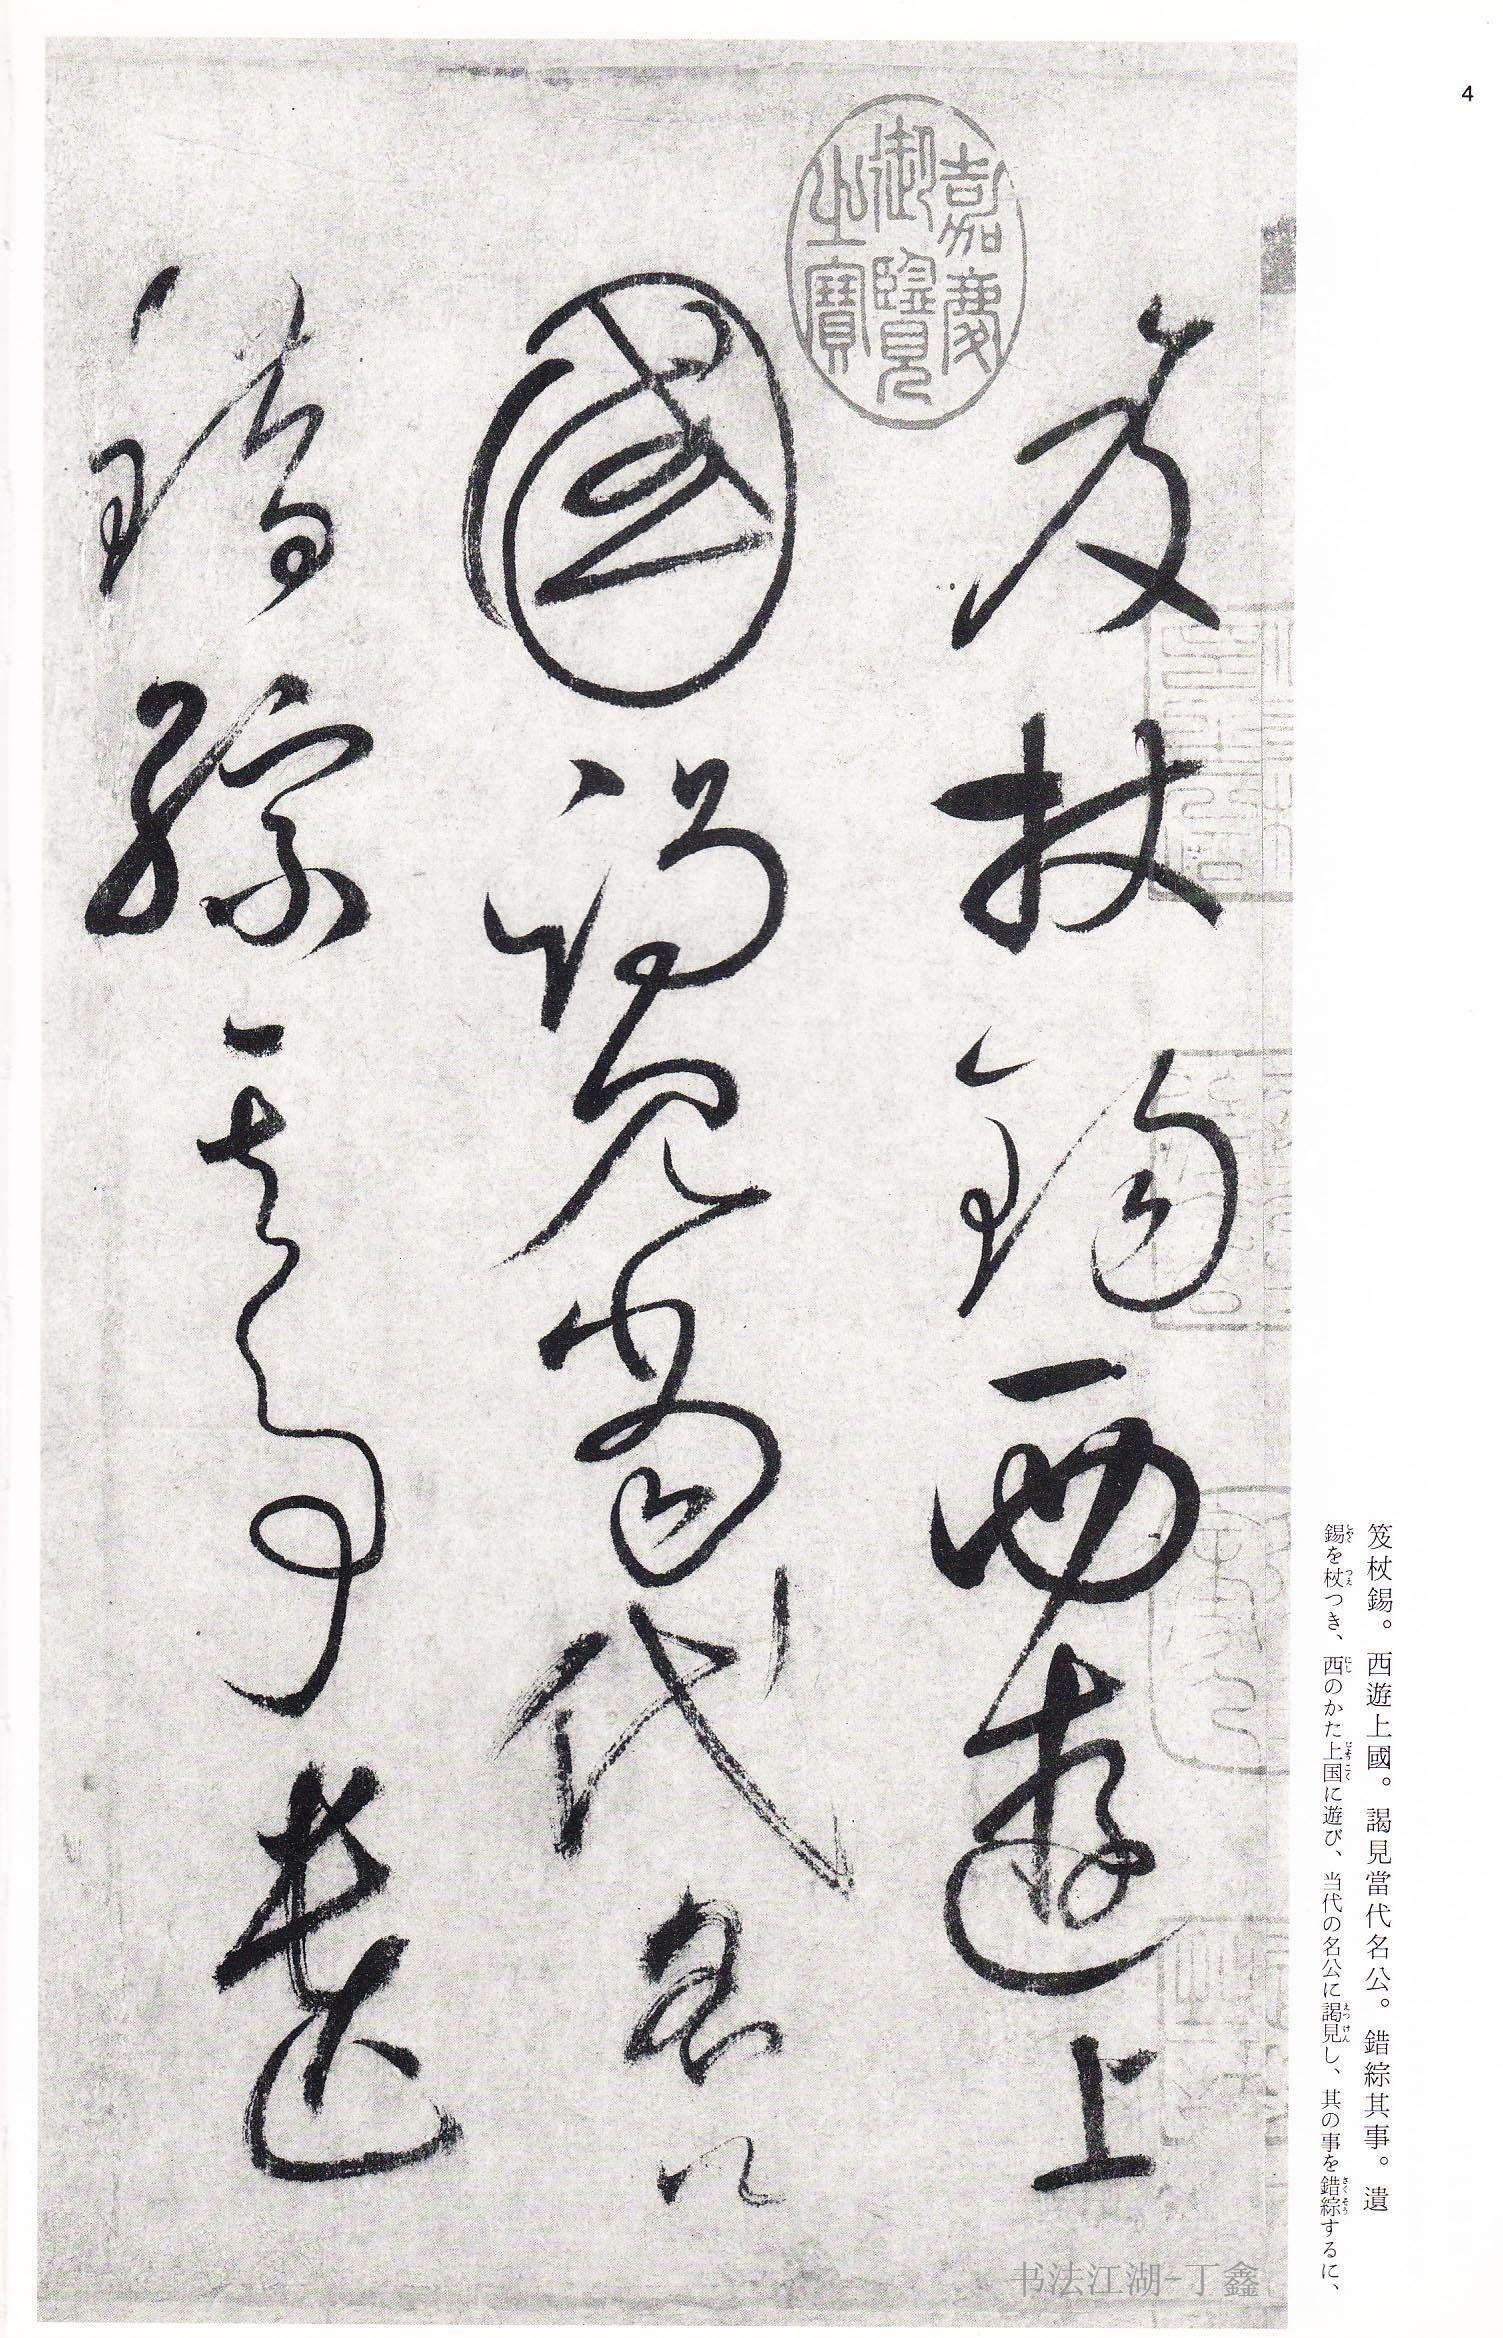 4
笈杖錫西遊上
國謁見當代名公
錯綜其事遺
嘉慶
御覽
之寶
笈杖錫。西遊上國。謁見當代名公。錯綜其事。遺
錫を杖つき、西のかた上国に遊び、当代の名公に謁見し、其の事を錯綜するに、
书法江湖-丁鑫